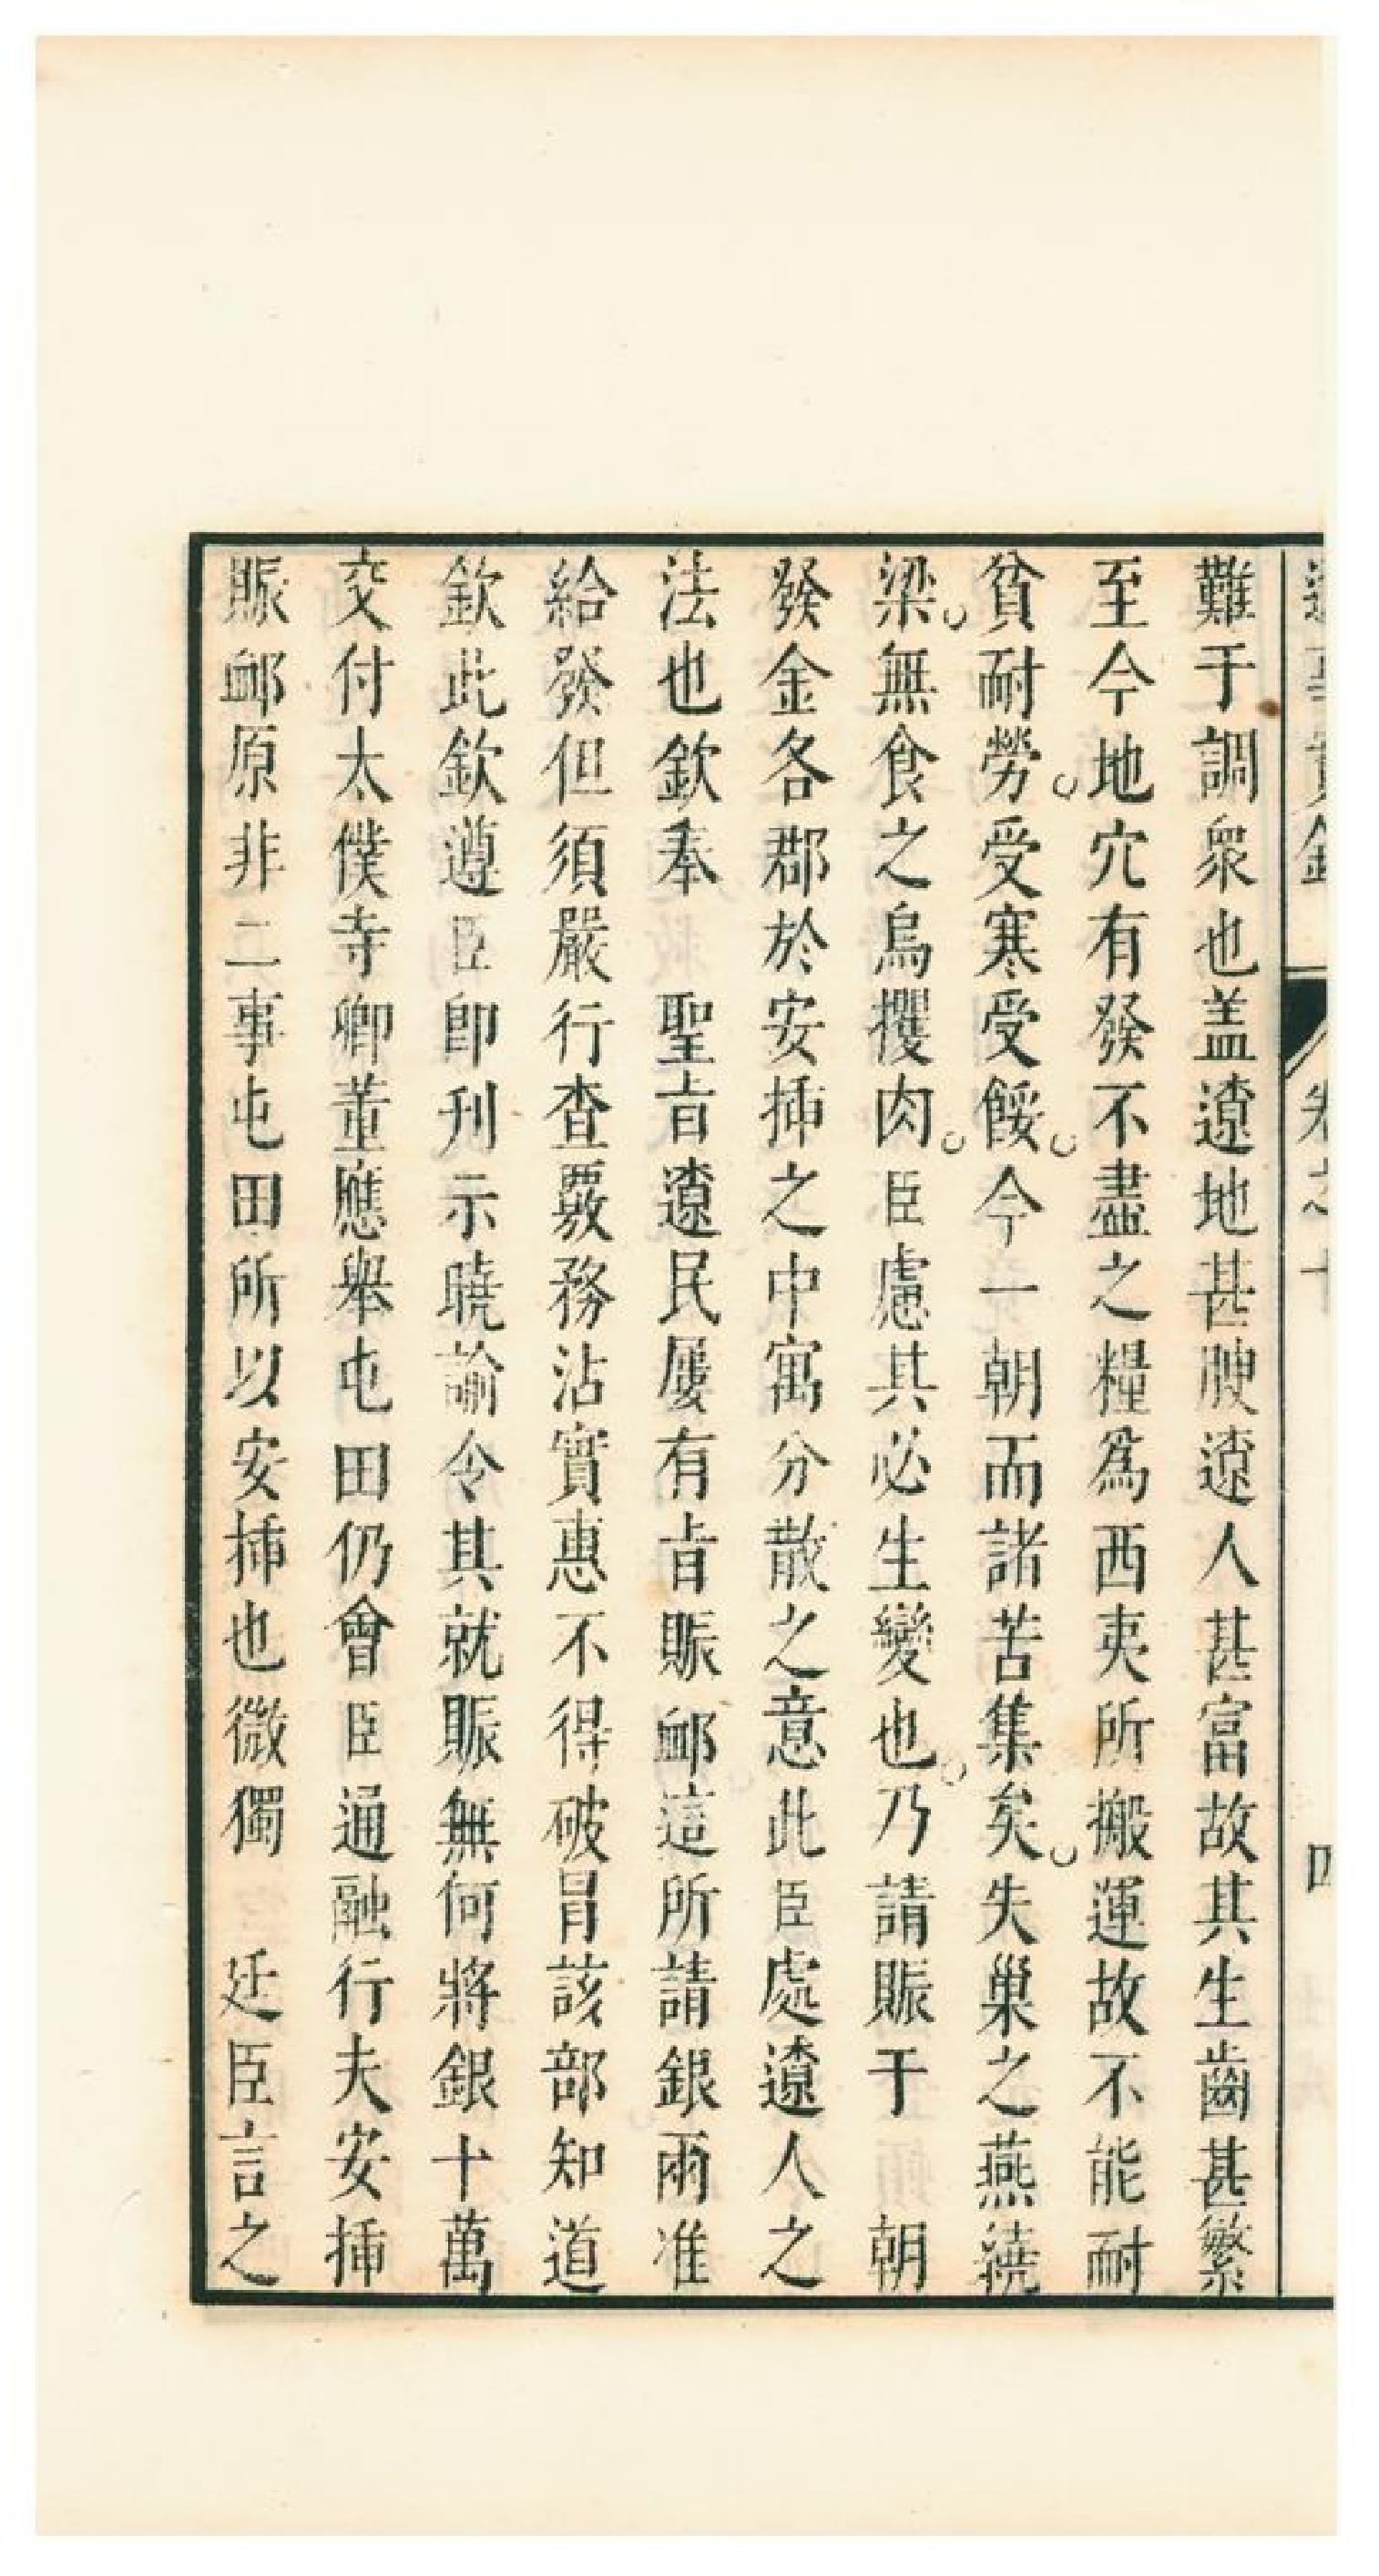 卷之十
四
難于調衆也盖遼地甚腴遼人甚富故其生齒甚繁
至今地穴有發不盡之糧爲西夷所搬運故不能耐
貧耐勞受寒受餒今一朝而諸苦集矣失巢之燕繞
梁無食之烏攫肉臣慮其必生變也乃請賑于　朝
發金各郡於安揷之中寓分散之意此臣處遼人之
法也欽奉　聖旨遼民屢有旨賑卹這所請銀兩准
給發但須嚴行查覈務沾實惠不得破冒該部知道
欽此欽遵臣卽刋示曉諭令其就賑無何將銀十萬
交付太僕寺卿董應舉屯田仍會臣通融行夫安揷
賑卹原非二事屯田所以安揷也微獨　廷臣言之